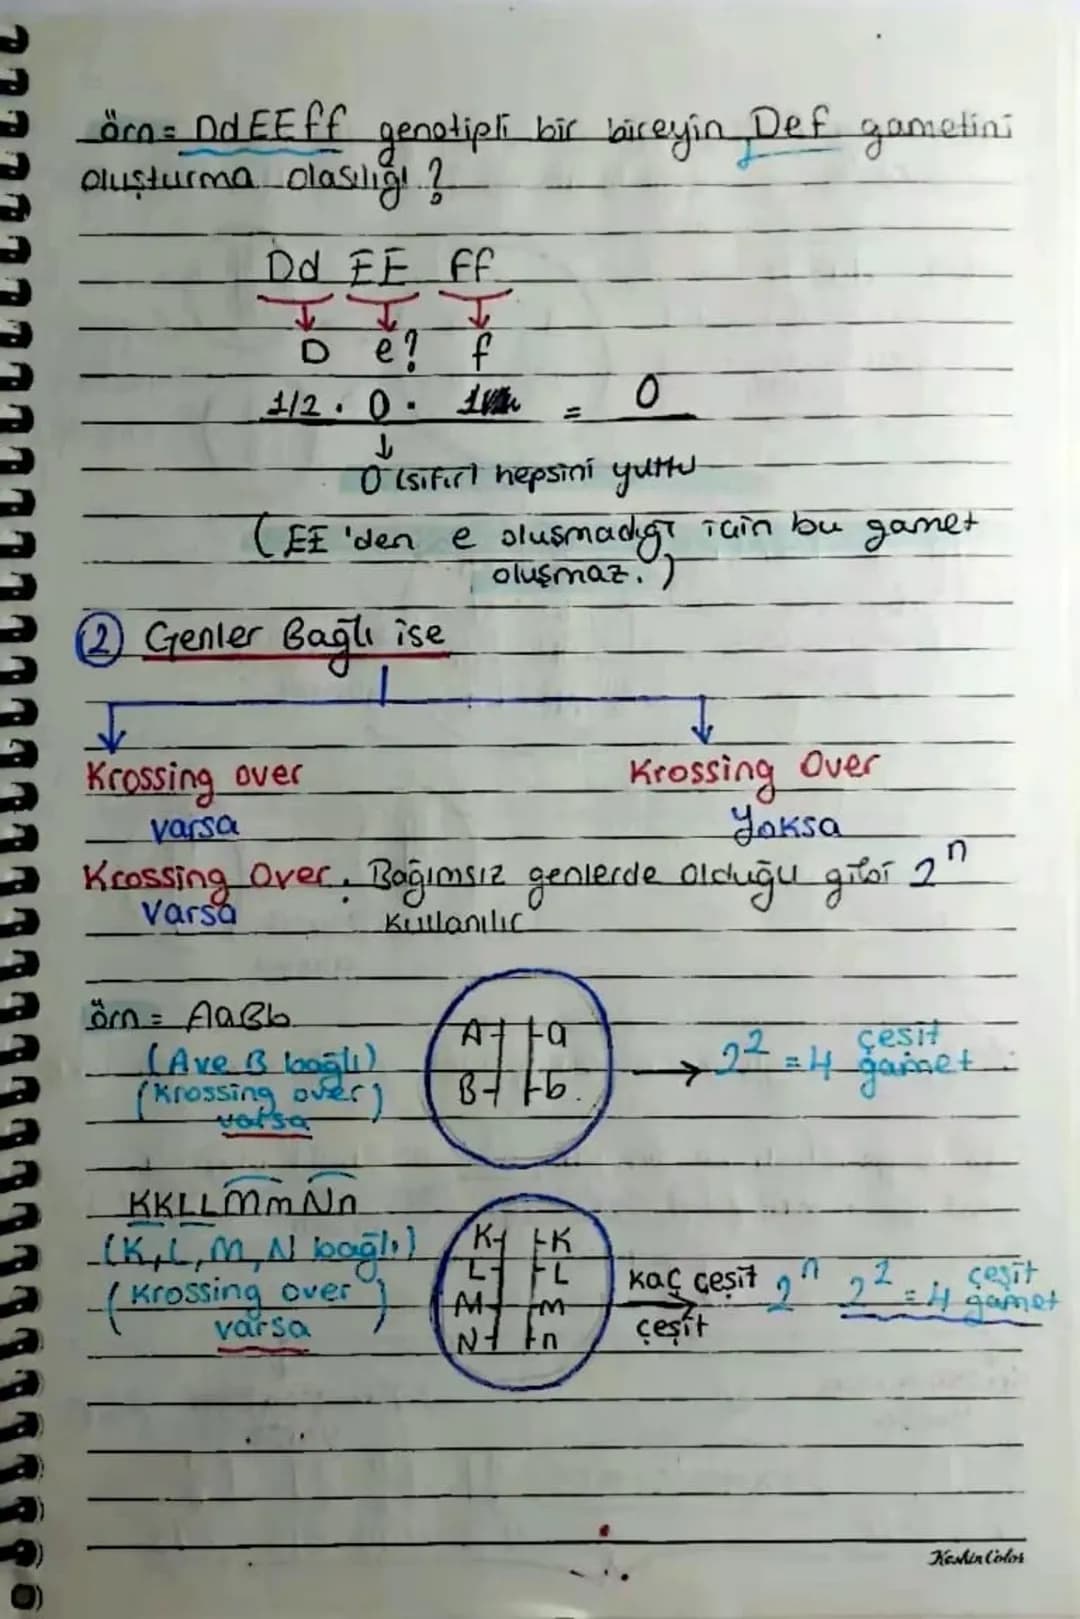 örn= DdEEff genotipli bir bireyin Def gametini
oluşturma olasılığı ?
Dd EE ff
D e? f
1/2 . 0 . 1 = 0
0 (sıfır) hepsini yuttu
(EE 'den e oluşmadığı için bu gamet
oluşmaz.)
2 Genler Bağlı ise
Krossing over
varsa
Krossing Over
Yoksa
Krossing Over. Bağımsız genlerde olduğu gibi 2ⁿ
Varsa Kullanılır
örn = AaBb
(A ve B bağlı)
(Krossing over)
varsa
A a
B b.
→ 2² = 4 çeşit
gamet
KKLLMmNn
(K,L,M,N bağlı)
(Krossing over)
varsa
K K
L L
M m
N n
kaç çeşit
çeşit
2ⁿ 2² = 4 çeşit
gamet
Keskin Color